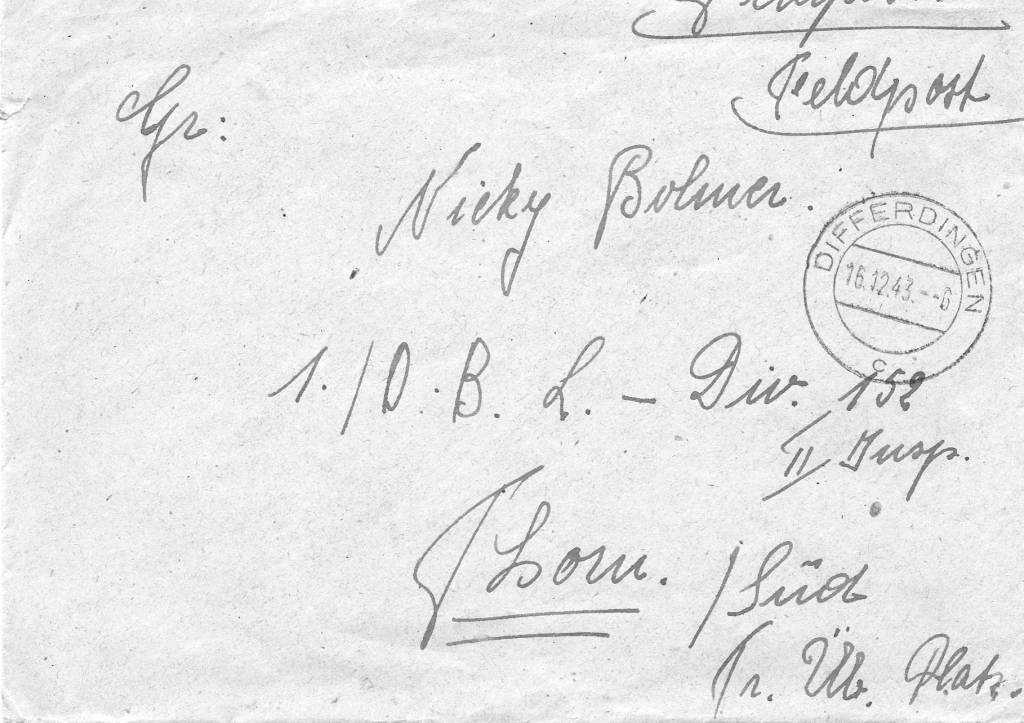 Feldpost
Gr:
Nicky Bolmer.
DIFFERDINGEN
16.12.43.--6
c
1./O.B.L. – Div. 152
II Insp.
Thorn. /Süd
Tr. Üb. Platz.